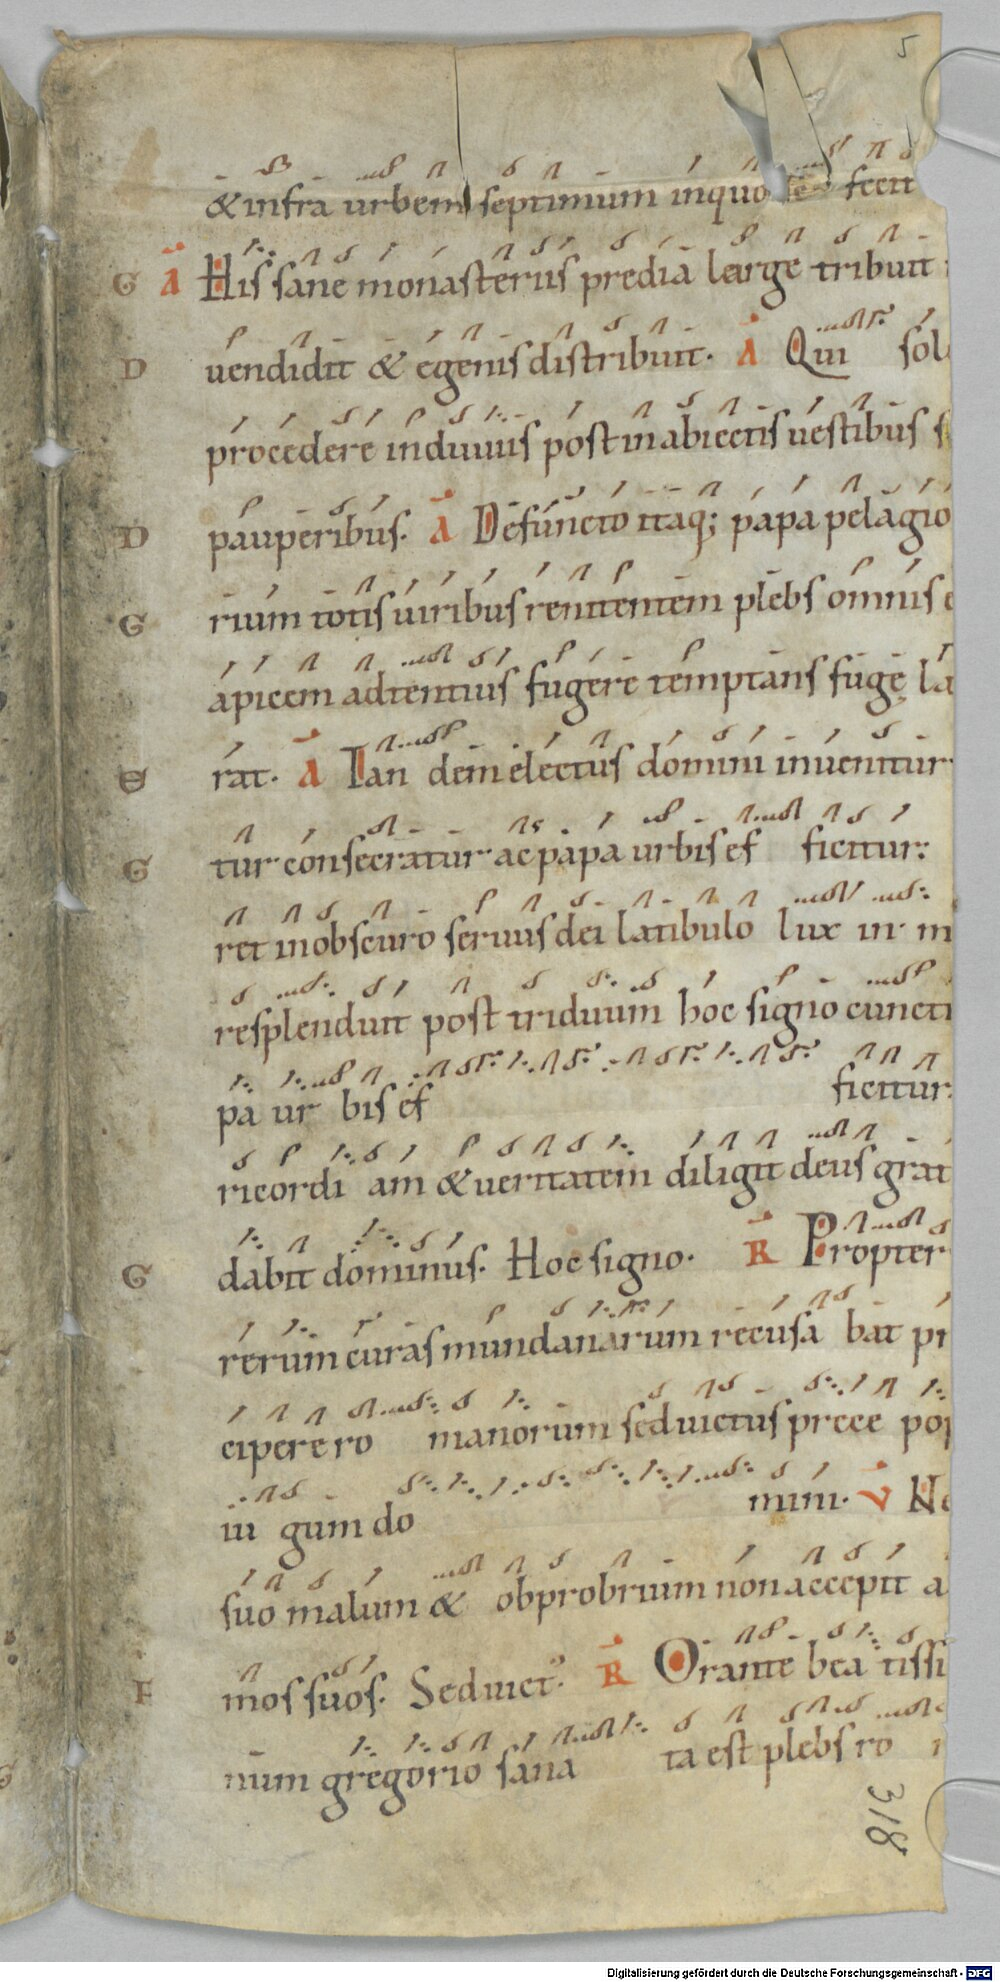 5
& infra urbem septimum inquo se fecit
G A His sane monasteriis predia large tribuit
D uendidit & egenis distribuit. A Qui sol
procedere induuiis post inabiectis uestibus s
D pauperibus. A Defuncto itaq; papa pelagio
G rium totis uiribus renitentem plebs omnis e
apicem adtentius fugere temptans fuge la
rat. A Tan dem electus domini inuenitur
G tur consecratur ac papa urbis ef ficitur:
ret inobscuro seruus dei latibulo lux in m
resplenduit post triduum hoc signo cuncti
pa ur bis ef ficitur:
ricordi am & ueritatem diligit deus grat
G dabit dominus. Hoc signo. R Propter
rerum curas mundanarum recusa bat pr
cipere ro manorum seduictus prece pop
iu gum do mini. V Ne
suo malum & obprobrium non accepit a
F mos suos. Seduict. R Orante bea tissi
num gregorio sana ta est plebs ro
318
Digitalisierung gefördert durch die Deutsche Forschungsgemeinschaft - DFG